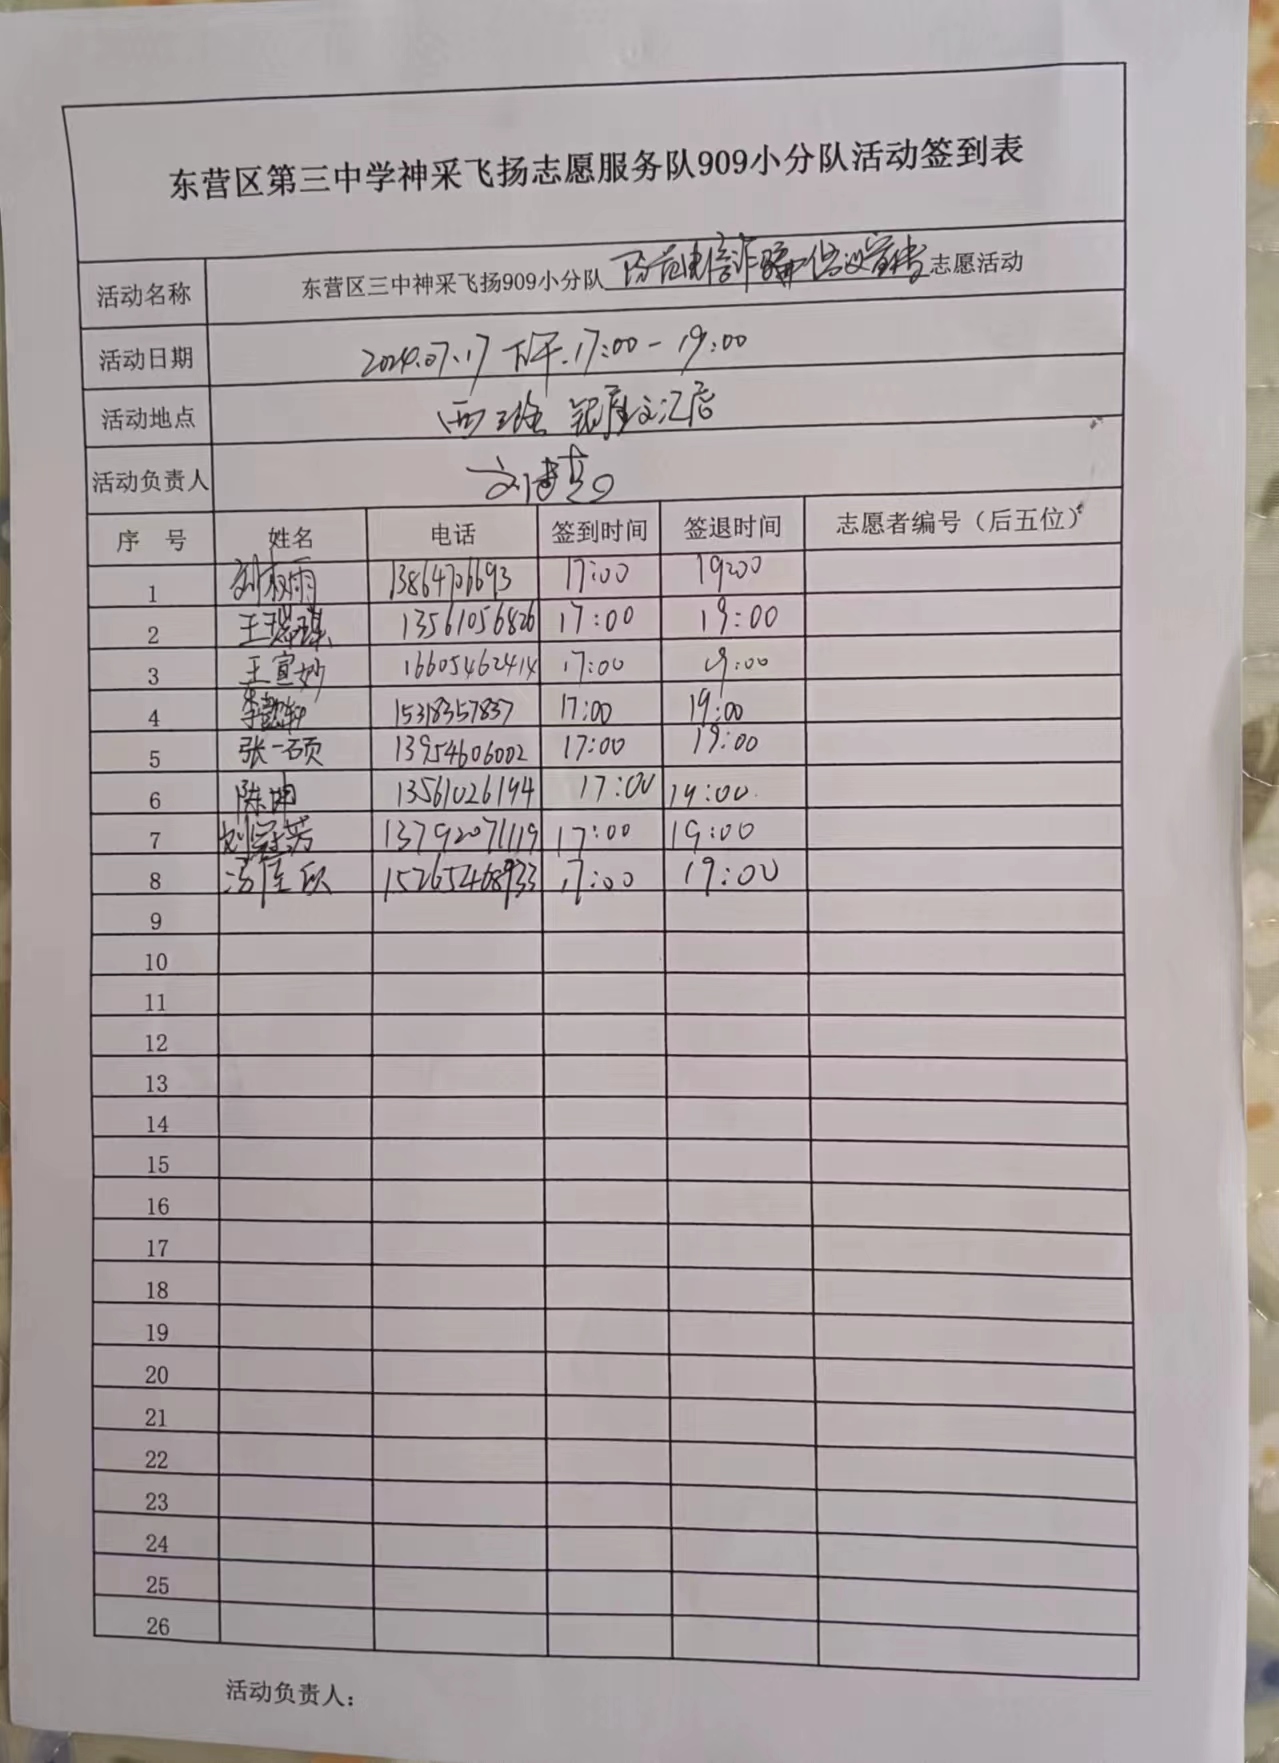 东营区第三中学神采飞扬志愿服务队909小分队活动签到表
活动名称 东营区三中神采飞扬909小分队 防范电信诈骗 宣传 志愿活动
活动日期 2024.07.17 下午.17:00-19:00
活动地点 西二路 银座文汇店
活动负责人
序 号 姓名 电话 签到时间 签退时间 志愿者编号（后五位）
1 13864706693 17:00 19:00
2 王瑞琪 13561056826 17:00 19:00
3 王宣妙 16605462414 17:00 19:00
4 15318357837 17:00 19:00
5 张一硕 13954606002 17:00 19:00
6 陈坤 13561026194 17:00 19:00
7 13792071119 17:00 19:00
8 15265468933 17:00 19:00
9
10
11
12
13
14
15
16
17
18
19
20
21
22
23
24
25
26
活动负责人：